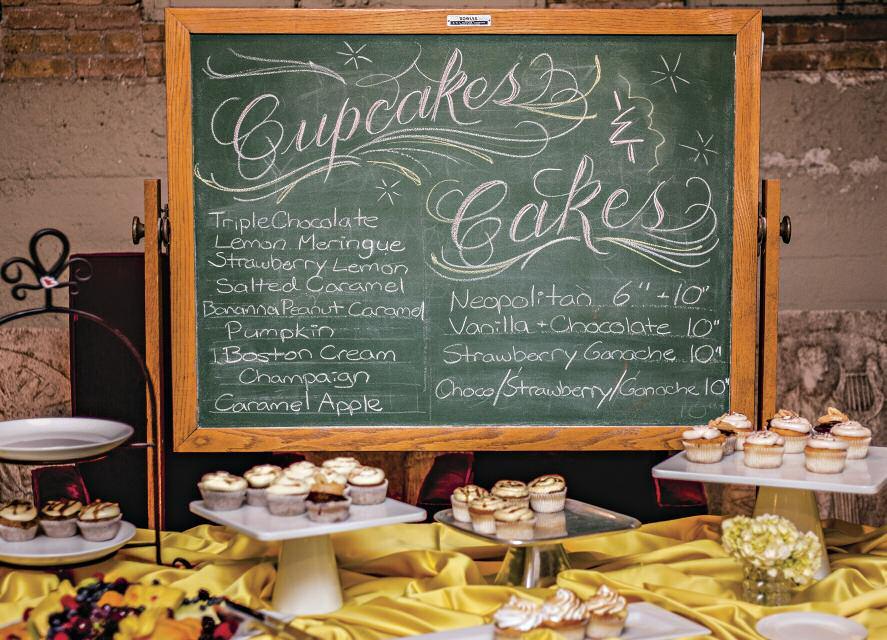 Cupcakes
&
Cakes
Triple Chocolate
Lemon Meringue
Strawberry Lemon
Salted Caramel
Bananna Peanut Caramel
Pumpkin
Boston Cream
Champaign
Caramel Apple
Neopolitan 6" + 10"
Vanilla + Chocolate 10"
Strawberry Ganache 10"
Choco/Strawberry/Ganache 10"